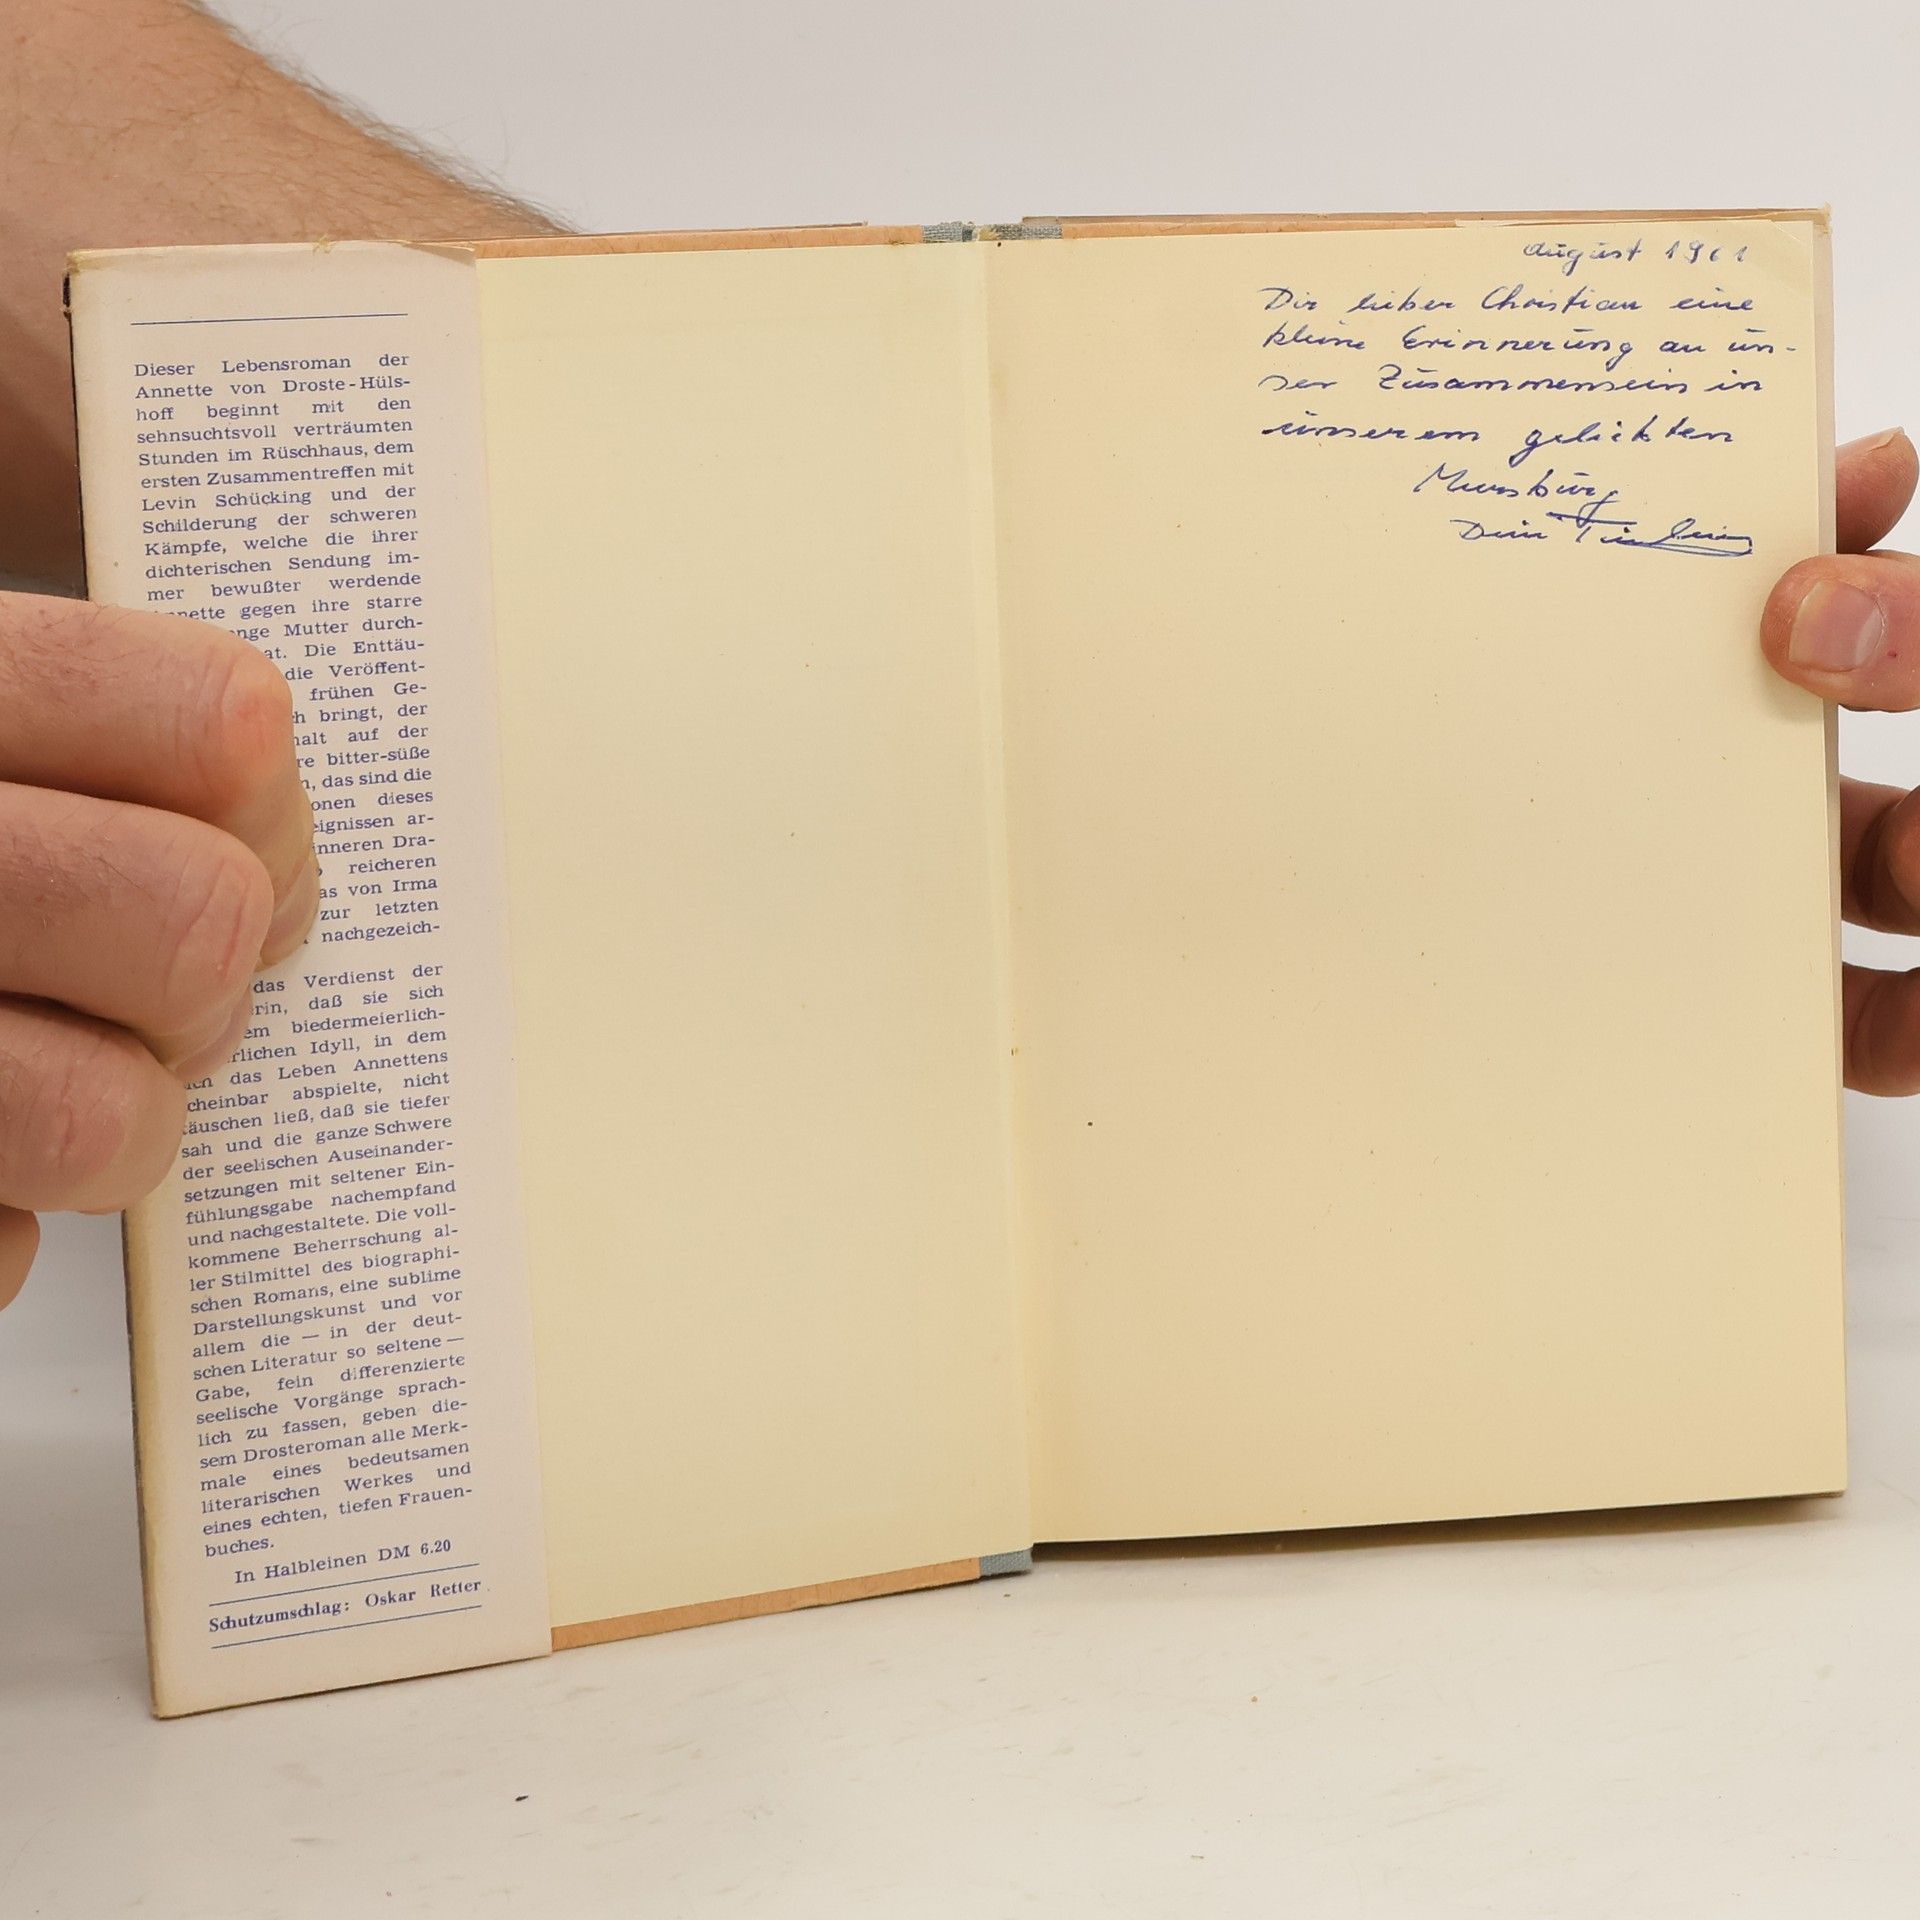 Dieser Lebensroman der
Annette von Droste-Hüls-
hoff beginnt mit den
sehnsuchtsvoll verträumten
Stunden im Rüschhaus, dem
ersten Zusammentreffen mit
Levin Schücking und der
Schilderung der schweren
Kämpfe, welche die ihrer
dichterischen Sendung im-
mer bewußter werdende
nnette gegen ihre starre
nge Mutter durch-
at. Die Enttäu-
die Veröffent-
frühen Ge-
h bringt, der
halt auf der
re bitter-süße
n, das sind die
onen dieses
eignissen ar-
inneren Dra-
reicheren
as von Irma
zur letzten
nachgezeich-
das Verdienst der
rin, daß sie sich
em biedermeierlich-
rlichen Idyll, in dem
ich das Leben Annettens
cheinbar abspielte, nicht
täuschen ließ, daß sie tiefer
sah und die ganze Schwere
der seelischen Auseinander-
setzungen mit seltener Ein-
fühlungsgabe nachempfand
und nachgestaltete. Die voll-
kommene Beherrschung al-
ler Stilmittel des biographi-
schen Romans, eine sublime
Darstellungskunst und vor
allem die — in der deut-
schen Literatur so seltene —
Gabe, fein differenzierte
seelische Vorgänge sprach-
lich zu fassen, geben die-
sem Drosteroman alle Merk-
male eines bedeutsamen
literarischen Werkes und
eines echten, tiefen Frauen-
buches.
In Halbleinen DM 6.20
Schutzumschlag: Oskar Retter
August 1961
Dir lieber Christian eine
kleine Erinnerung an un-
ser Zusammensein in
unserem geliebten
Meersburg
Dein